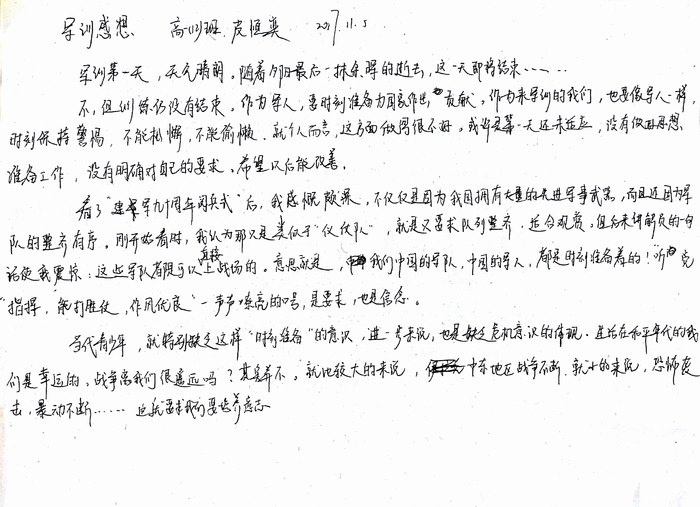 军训感想 高一(13)班 皮恒奕 2017.11.5
军训第一天，天气晴朗。随着夕阳最后一抹余晖的逝去，这一天即将结束……
不，但训练仍没有结束。作为军人，要时刻准备为国家作出贡献。作为来军训的我们，也要像军人一样，
时刻保持警惕，不能松懈，不能偷懒。就个人而言，这方面做得很不好，或许是第一天还未适应，没有做好思想
准备工作，没有明确对自己的要求。希望以后能改善。
看了“建军九十周年阅兵式”后，我感慨颇深，不仅仅是因为我国拥有大量的先进军事武器，而且还因为军
队的整齐有序。刚开始看时，我认为那只是类似于“仪仗队”，就是只要求队列整齐，适合观赏，但后来讲解员的一句
话使我震惊：这些军队都可以直接上战场的。意思就是，我们中国的军队，中国的军人，都是时刻准备着的！听党
指挥，能打胜仗，作风优良”一声声嘹亮的口号，是要求，也是信念。
当代青少年，就特别缺乏这样“时刻准备”的意识，进一步来说，也是缺乏危机意识的体现。生活在和平年代的我
们是幸运的，战争离我们很遥远吗？其实并不。就比较大的来说，中东地区战争不断，就小的来说，恐怖袭
击，暴动不断……这就要求我们要培养意志